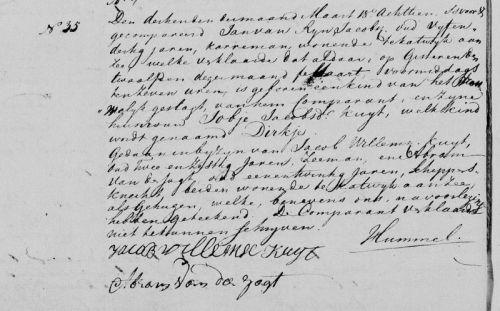 No 35
Den dertienden der maand Maart 18 Achttien, is voor ons
gecompareerd Jan van Ryn Jacobz, oud vyfen
dertig jaren, karreman, wonende te Katwyk aan
Zee, welke verklaarde dat aldaar, op Gisteren den
twaalfden dezer maand Maart voormiddags
ten zeven uren, is geboren een kind van het
Melyk geslagt, van hem Comparant, en zyne
huisvrouw Jobje Jacobsd Kuyt, welk kind
wordt genaamd Dirkje
Gedaan in bywyn van Jacob Willemsz Kuyt,
oud twee en zestig Jaren, Zeeman, en Abram
van der Jagt, oud een en twintig Jaren, Schippers
Knecht, beiden wonende te Katwyk aan Zee,
als getuigen, welke, benevens ons, na voorlezing
hebben geteekend. De Comparant verklaarde
niet te kunnen schryven.
Jacob Willemse Kuyt
Hummel.
Abram van der Jagt